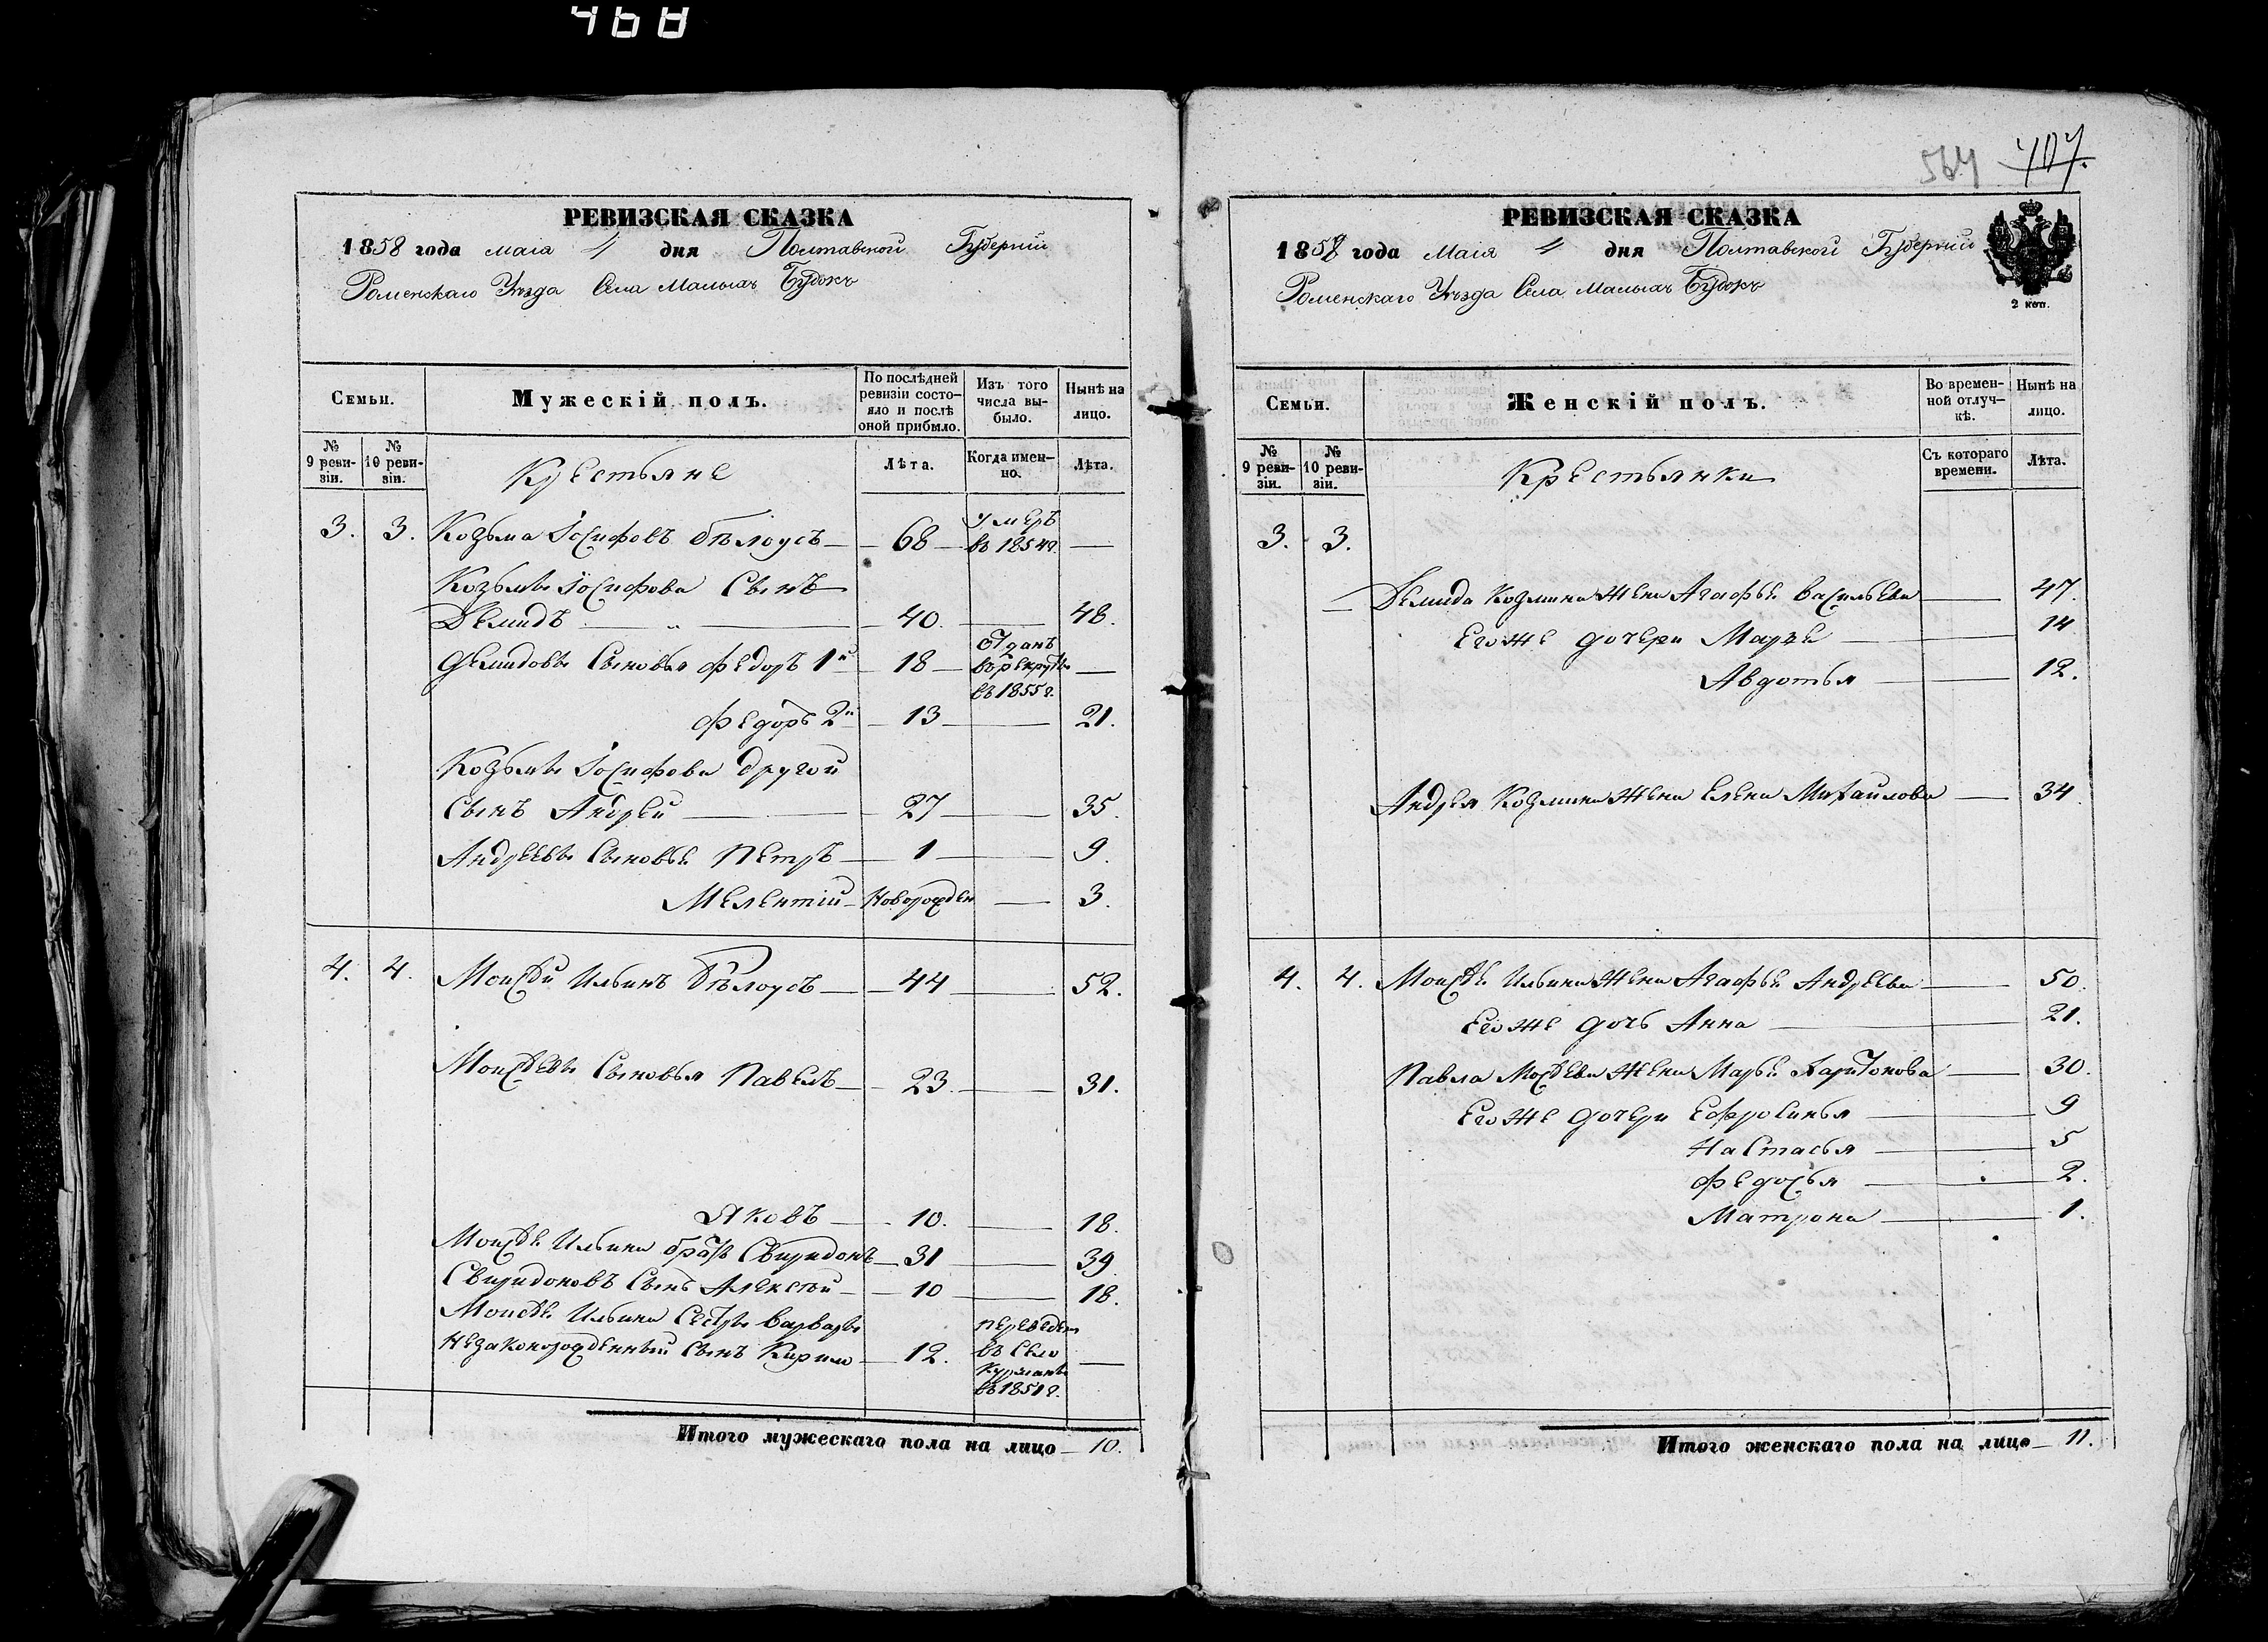 468
РЕВИЗСКАЯ СКАЗКА
1858 года маія 4 дня Полтавской Губерніи
Роменскаго Уѣзда Села Малыхъ Будокъ
Семьи.
Мужескій полъ.
По послѣдней ревизіи состояло и послѣ оной прибыло.
Изъ того числа выбыло.
Нынѣ на лицо.
№ 9 ревизіи.
№ 10 ревизіи.
Крестьяне
Лѣта.
Когда именно.
Лѣта.
3. 3. Козьма Іосифовъ Бѣлоусъ — 68 — умеръ въ 1854г. —
Козьмы Іосифова Сынъ
Демидъ — „ — 40. — 48.
Демидовы Сыновья Федоръ 1й — 18 — Отданъ въ рекруты въ 1855г. —
Федоръ 2й — 13 — 21.
Козьмы Іосифова другой
Сынъ Андрей — 27 — 35.
Андреевы Сыновья Петръ — 1 — 9.
Мелентій — Новорожден — 3.
4. 4. Моисѣй Ильинъ Бѣлоусъ — 44 — 52.
Моисѣевы Сыновья Павелъ — 23. — 31.
Яковъ — 10. — 18.
Моисѣя Ильина братъ Свиридонъ — 31 — 39.
Свиридоновъ Сынъ Алексѣй — 10 — 18.
Моисѣя Ильина Сестры Варвары
незаконорожденный Сынъ Кирило — 12. переведен въ село въ 1851г. —
Итого мужескаго пола на лицо — 10.
564 707.
РЕВИЗСКАЯ СКАЗКА
1858 года Маія 4 дня Полтавской Губерніи
Роменскаго Уѣзда Села Малыхъ Будокъ
2 коп.
Семьи.
Женскій полъ.
Во временной отлучкѣ.
Нынѣ на лицо.
№ 9 ревизіи.
№ 10 ревизіи.
Крестьянки
Съ котораго времени.
Лѣта.
3. 3.
— Демида Козмина Жена Агафья Васильева — 47.
Его же дочери Марья — 14
Авдотья — 12.
Андрея Козмина Жена Елена Михайлова — 34.
4. 4. Моисѣя Ильина Жена Агафья Андреева — 50.
Его же дочь Анна — 21.
Павла Мосѣева Жена Марья Харитонова — 30.
Его же дочери Ефросинья — 9
Настасья — 5
Федосья — 2.
Матрона — 1.
Итого женскаго пола на лицо — 11.